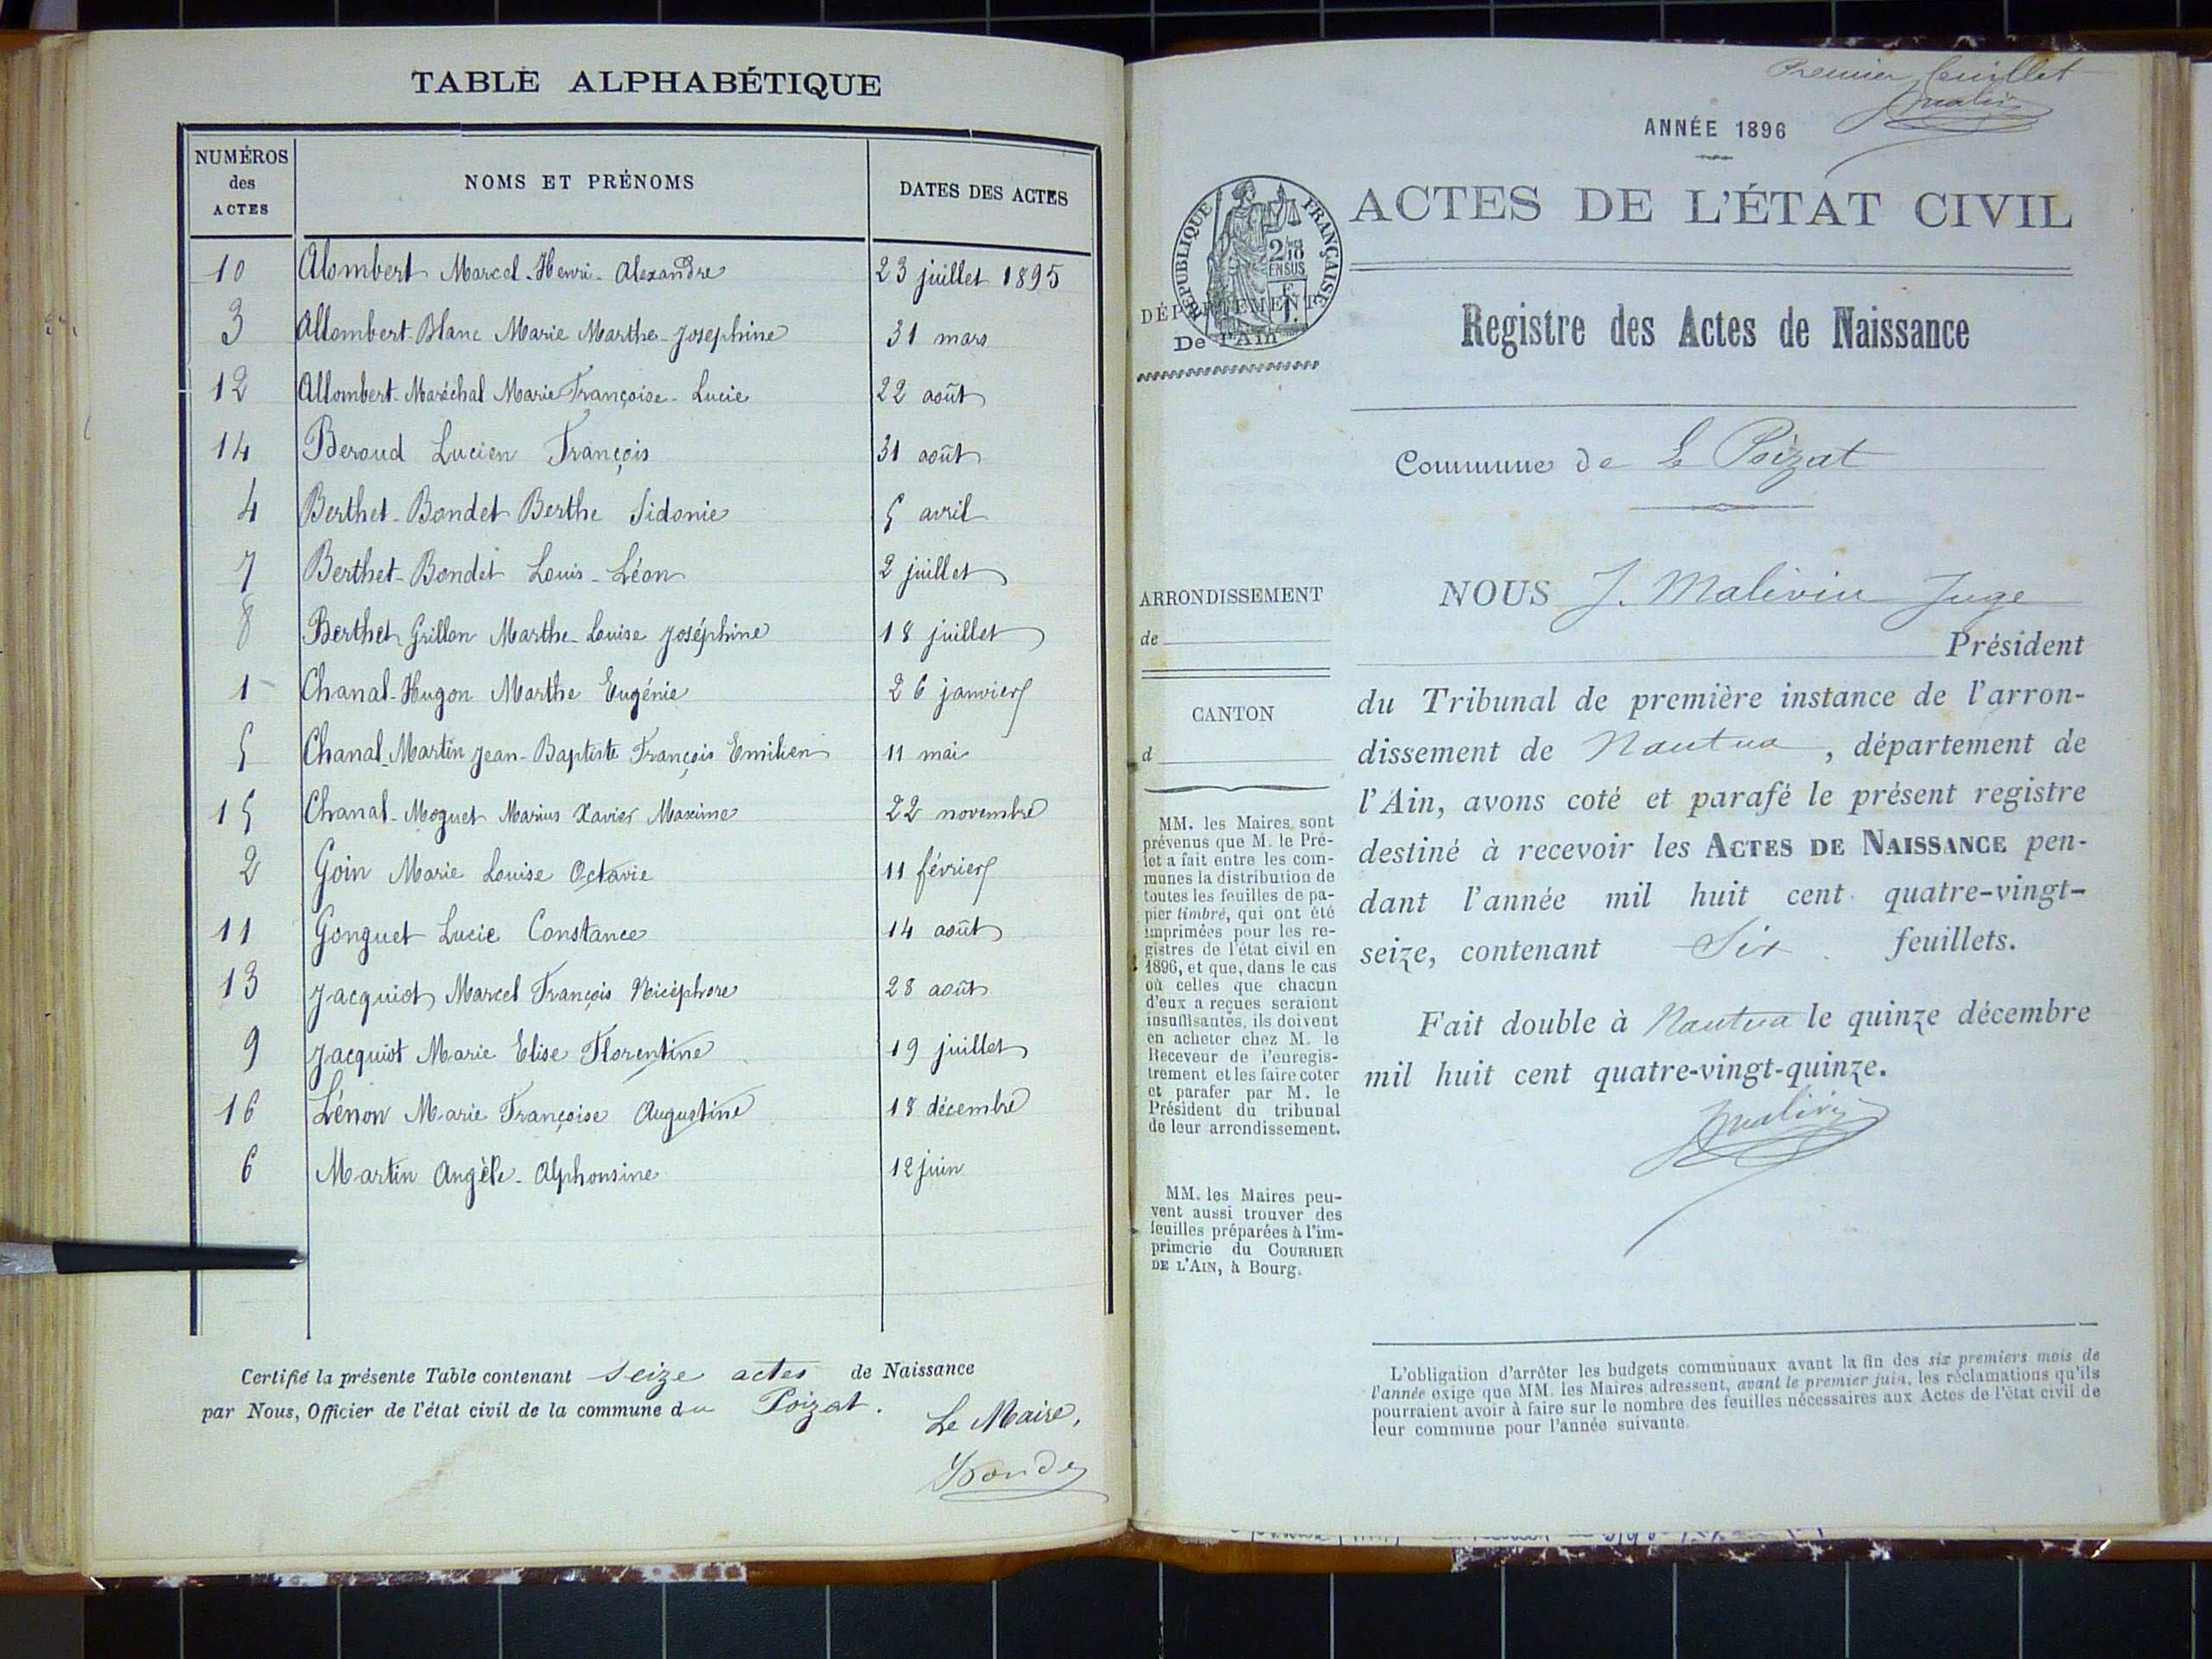 TABLE ALPHABÉTIQUE
NUMÉROS des ACTES NOMS ET PRÉNOMS DATES DES ACTES
10 Alombert Marcel-Henri-Alexandre 23 juillet 1895
3 Allombert-Blanc Marie Marthe-Joséphine 31 mars
12 Allombert-Maréchal Marie Françoise-Lucie 22 août
14 Beroud Lucien François 31 août
4 Berthet-Bondet Berthe Sidonie 5 avril
7 Berthet-Bondet Louis-Léon 2 juillet
8 Berthet Grillon Marthe-Louise Joséphine 18 juillet
1 Chanal-Hugon Marthe Eugénie 26 janvier
5 Chanal-Martin Jean-Baptiste François Emilien 11 mai
15 Chanal-Moguet Marius Xavier Maxime 22 novembre
2 Goin Marie Louise Octavie 11 février
11 Gonguet Lucie Constance 14 août
13 Jacquiot Marcel François Nicéphore 28 août
9 Jacquiot Marie Elise Florentine 19 juillet
16 Lénon Marie Françoise Augustine 18 décembre
6 Martin Angèle-Alphonsine 12 juin
Certifié la présente Table contenant seize actes de Naissance
par Nous, Officier de l'état civil de la commune du Poizat.
Le Maire,
Premier feuillet
ANNÉE 1896
RÉPUBLIQUE FRANÇAISE
ACTES DE L'ÉTAT CIVIL
DÉPARTEMENT
De l'Ain
Registre des Actes de Naissance
Commune de Le Poizat
ARRONDISSEMENT
de
CANTON
d
MM. les Maires sont
prévenus que M. le Pré-
fet a fait entre les com-
munes la distribution de
toutes les feuilles de pa-
pier timbré, qui ont été
imprimées pour les re-
gistres de l'état civil en
1896, et que, dans le cas
où celles que chacun
d'eux a reçues seraient
insuffisantes, ils doivent
en acheter chez M. le
Receveur de l'enregis-
trement et les faire coter
et parafer par M. le
Président du tribunal
de leur arrondissement.
MM. les Maires peu-
vent aussi trouver des
feuilles préparées à l'im-
primerie du COURRIER
DE L'AIN, à Bourg.
NOUS J. Malivin Juge
Président
du Tribunal de première instance de l'arron-
dissement de Nantua, département de
l'Ain, avons coté et parafé le présent registre
destiné à recevoir les ACTES DE NAISSANCE pen-
dant l'année mil huit cent quatre-vingt-
seize, contenant Six feuillets.
Fait double à Nantua le quinze décembre
mil huit cent quatre-vingt-quinze.
L'obligation d'arrêter les budgets communaux avant la fin des six premiers mois de
l'année exige que MM. les Maires adressent, avant le premier juin, les réclamations qu'ils
pourraient avoir à faire sur le nombre des feuilles nécessaires aux Actes de l'état civil de
leur commune pour l'année suivante.